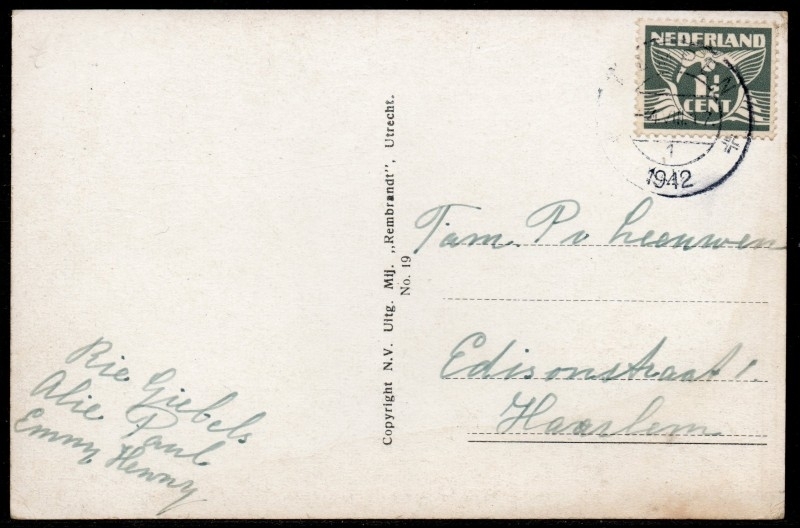 NEDERLAND
1½
CENT
1
1942
Fam. P. v Leeuwen
Edisonstraat 1.
Haarlem
Copyright N.V. Uitg. Mij. „Rembrandt", Utrecht.
No. 19
Rie Giebels
Alie Paul
Emmy Henny